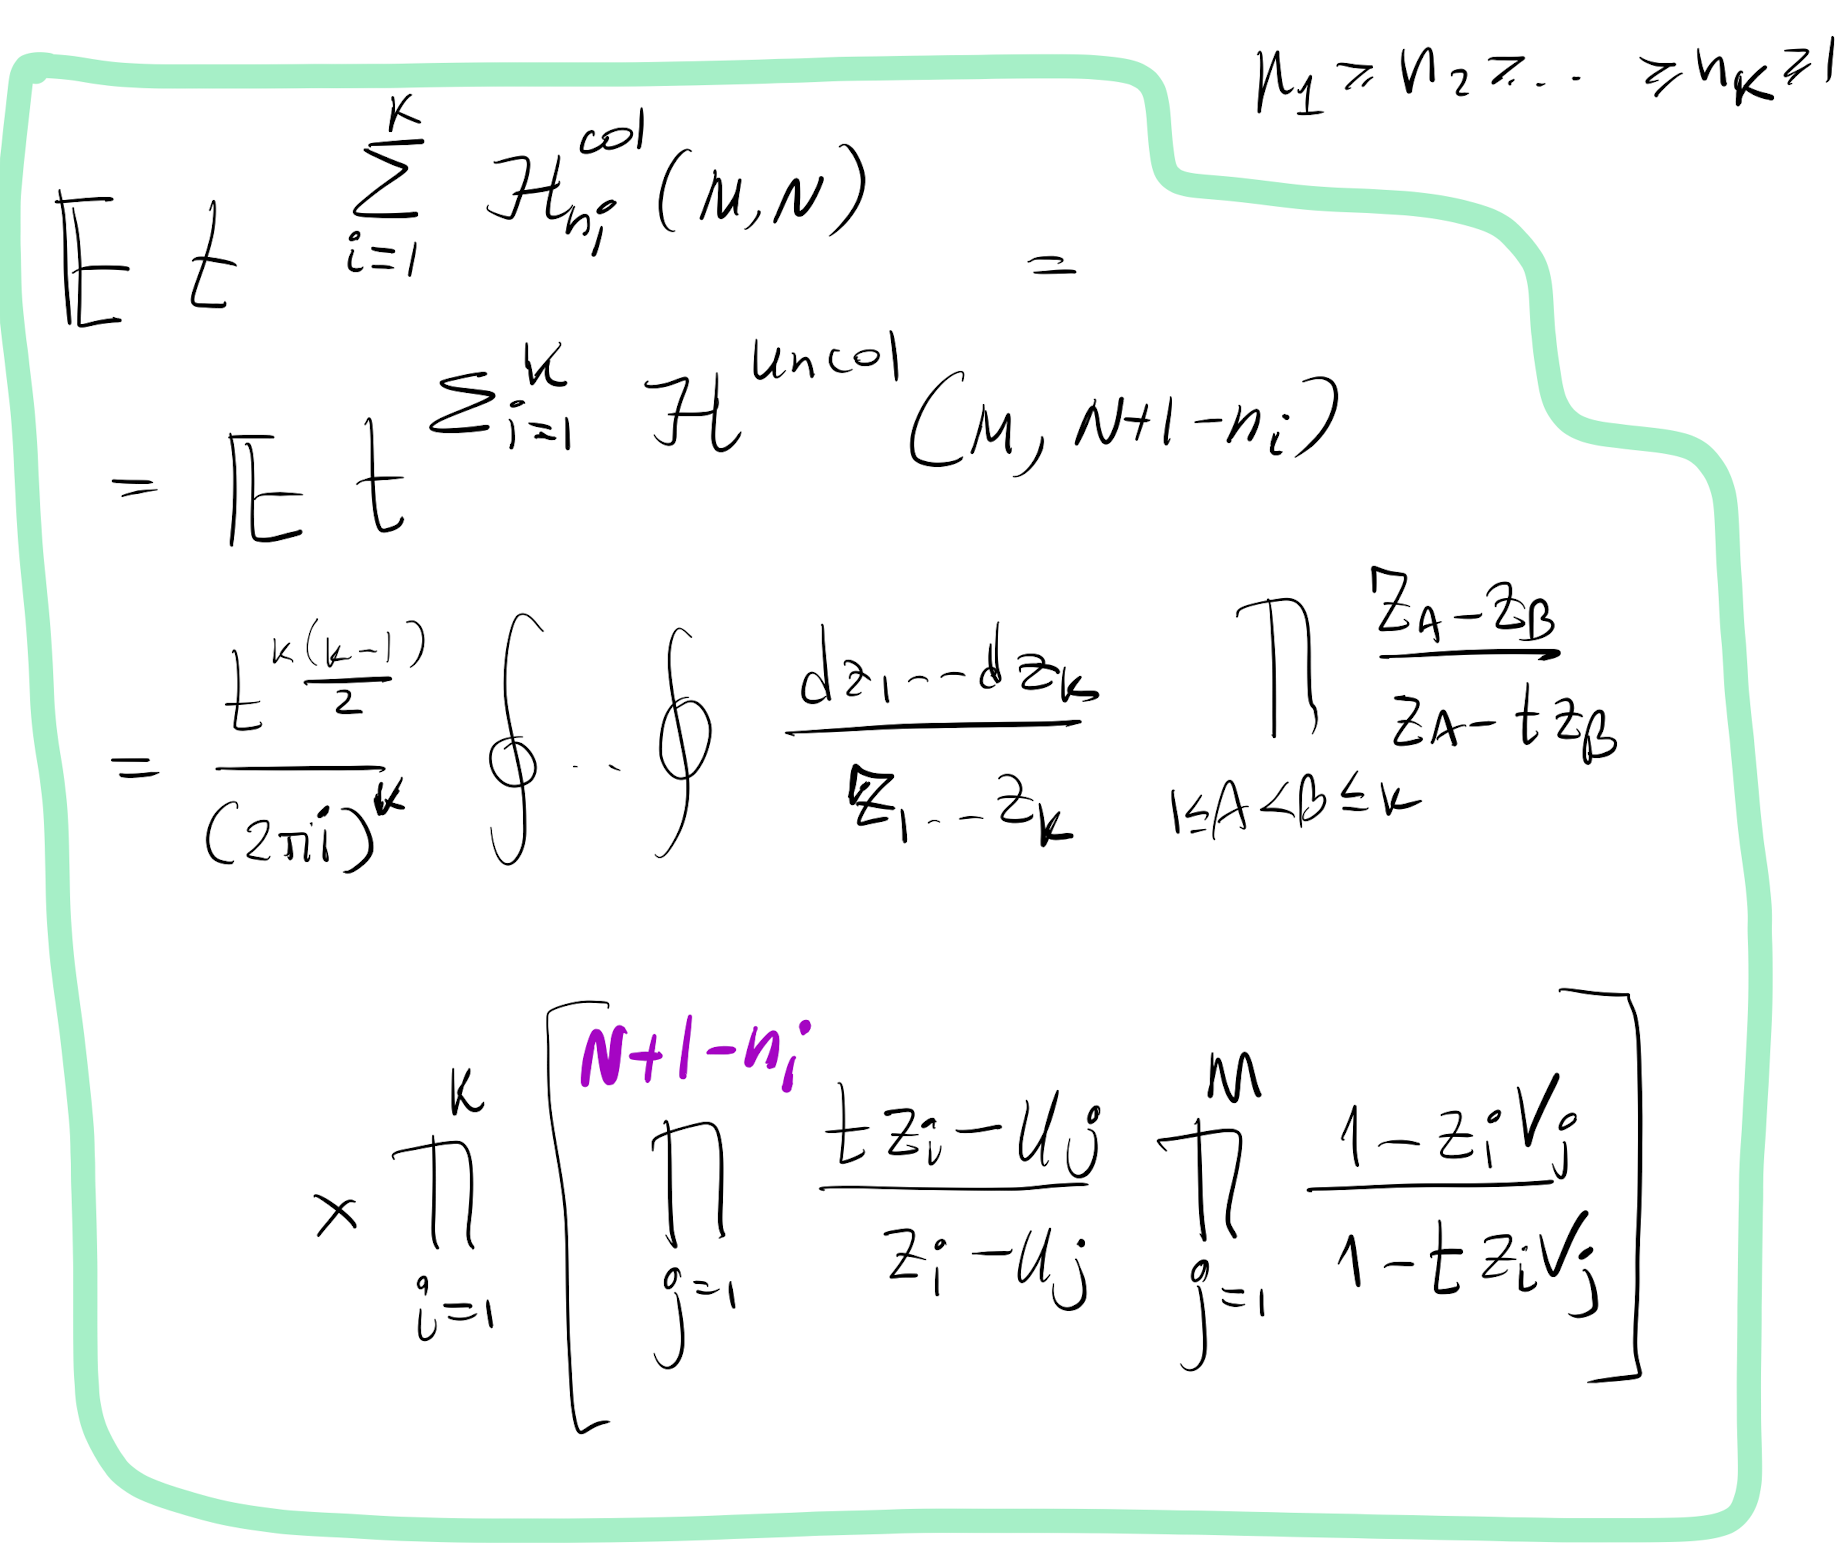 n_1 ≥ n_2 ≥ ... ≥ n_K ≥ 1
𝔼 t^{\sum_{i=1}^{K} \mathcal{H}^{col}_{n_i}(M,N)} =
= 𝔼 t^{\sum_{i=1}^{K} \mathcal{H}^{uncol}(M, N+1-n_i)}
= \frac{t^{\frac{k(k-1)}{2}}}{(2πi)^k} ∮ ... ∮ \frac{dz_1 ... dz_k}{z_1 ... z_k} \prod_{1≤A<B≤k} \frac{z_A - z_B}{z_A - t z_B}
× \prod_{i=1}^{k} \left[ \prod_{j=1}^{N+1-n_i} \frac{t z_i - u_j}{z_i - u_j} \prod_{j=1}^{M} \frac{1 - z_i v_j}{1 - t z_i v_j} \right]